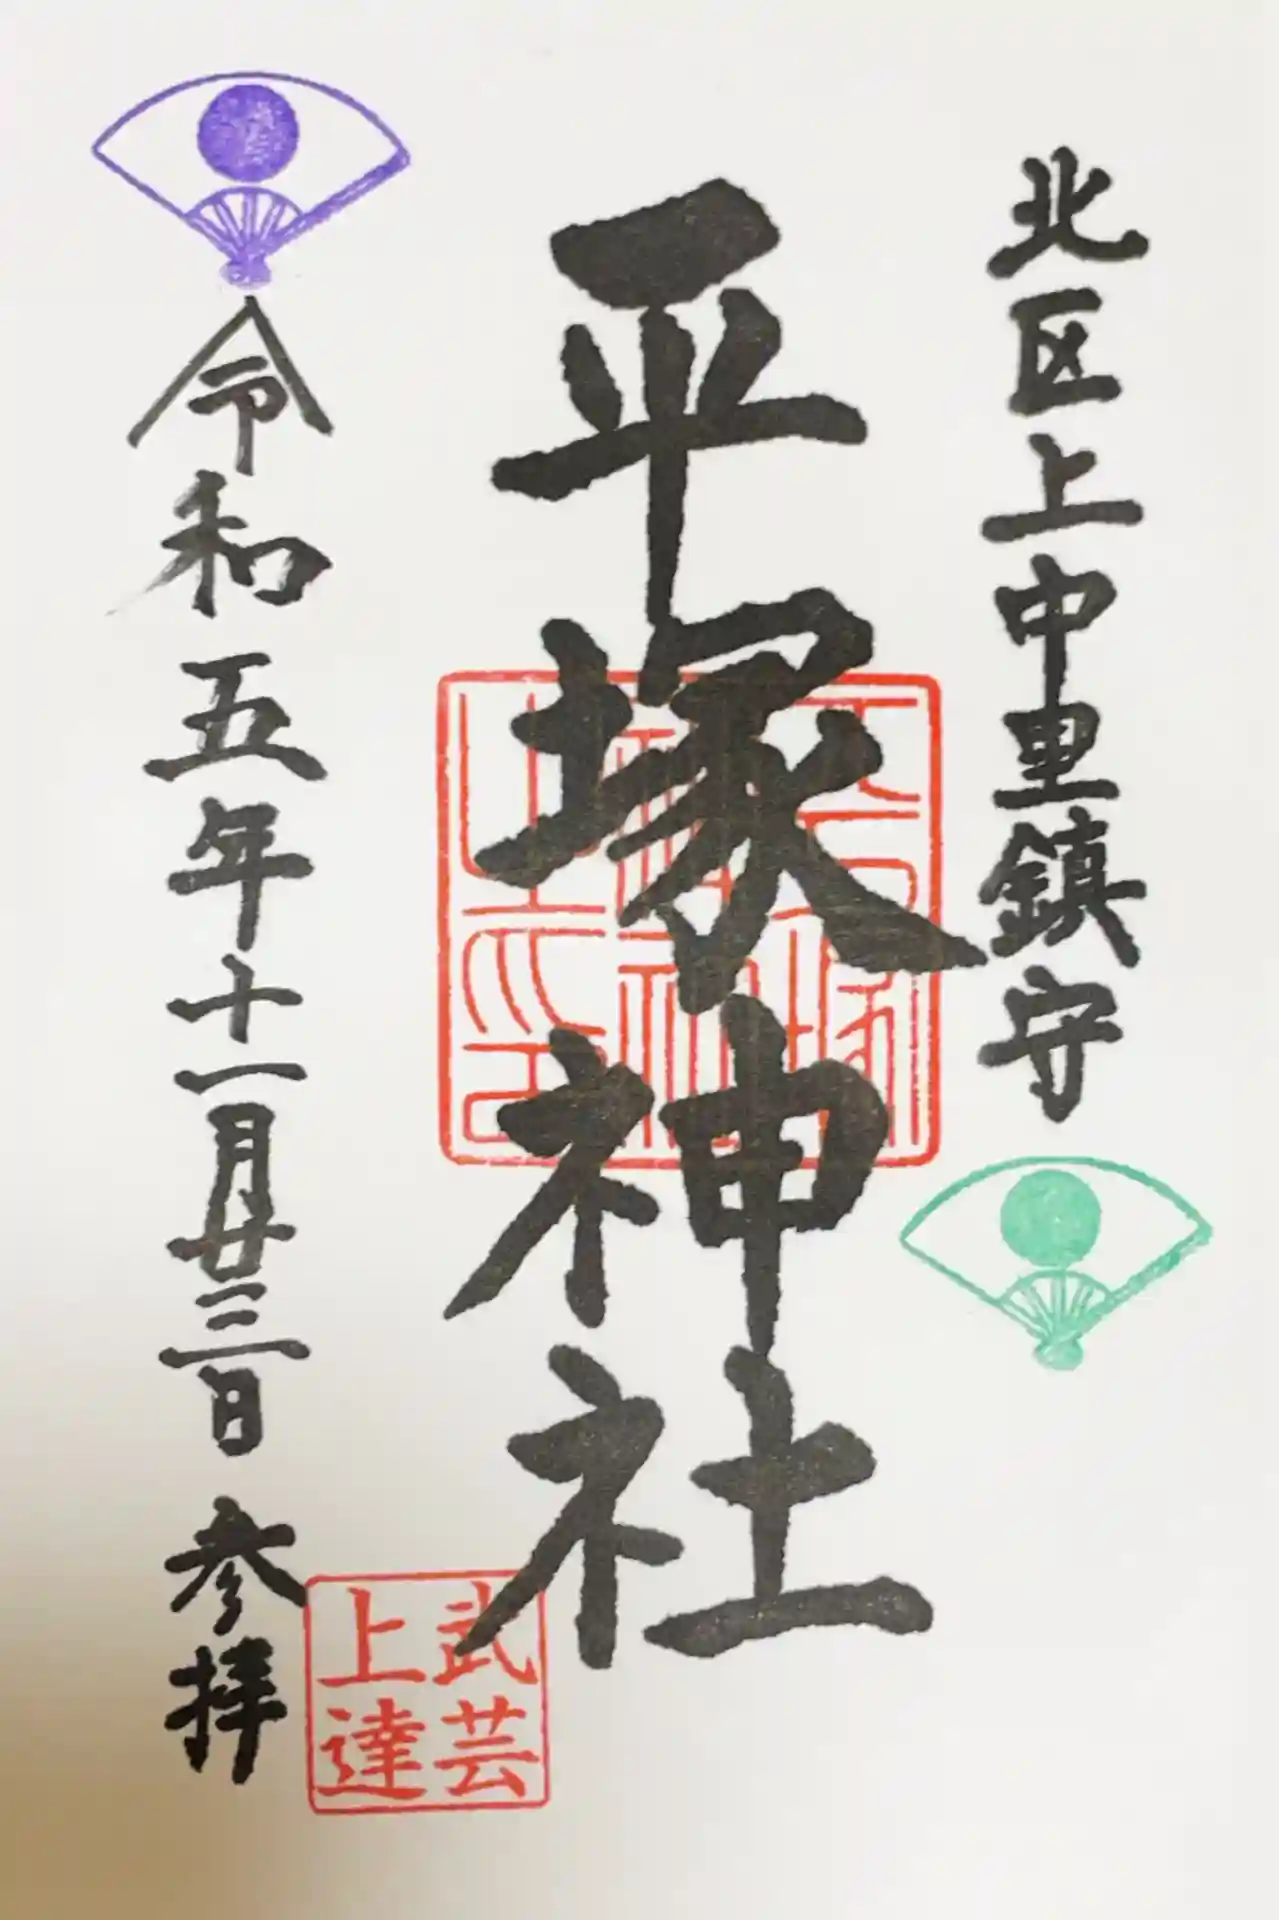 北区上中里鎮守
平塚神社
武芸
上達
令和五年十一月廿三日 参拝